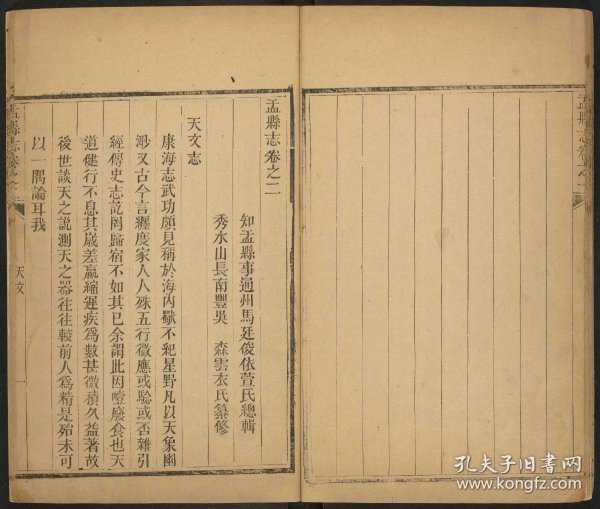 盂縣志卷之二
知盂縣事通州馬廷俊依萱氏總輯
秀水山長南豐吳 森雲衣氏纂修
天文志
康海志武功頗見稱於海內獨不紀星野凡以天象幽
渺又古今言纏度家人人殊五行徵應或驗或否雜引
經傳史志訖罔歸宿不如其已余謂此因噎廢食也天
道健行不息其歲差嬴縮遲疾爲數甚微積久益著故
後世談天之說測天之器往往較前人爲精是殆未可
以一隅論耳我
盂縣志卷之二
天文
孔夫子旧书网
www.kongfz.com